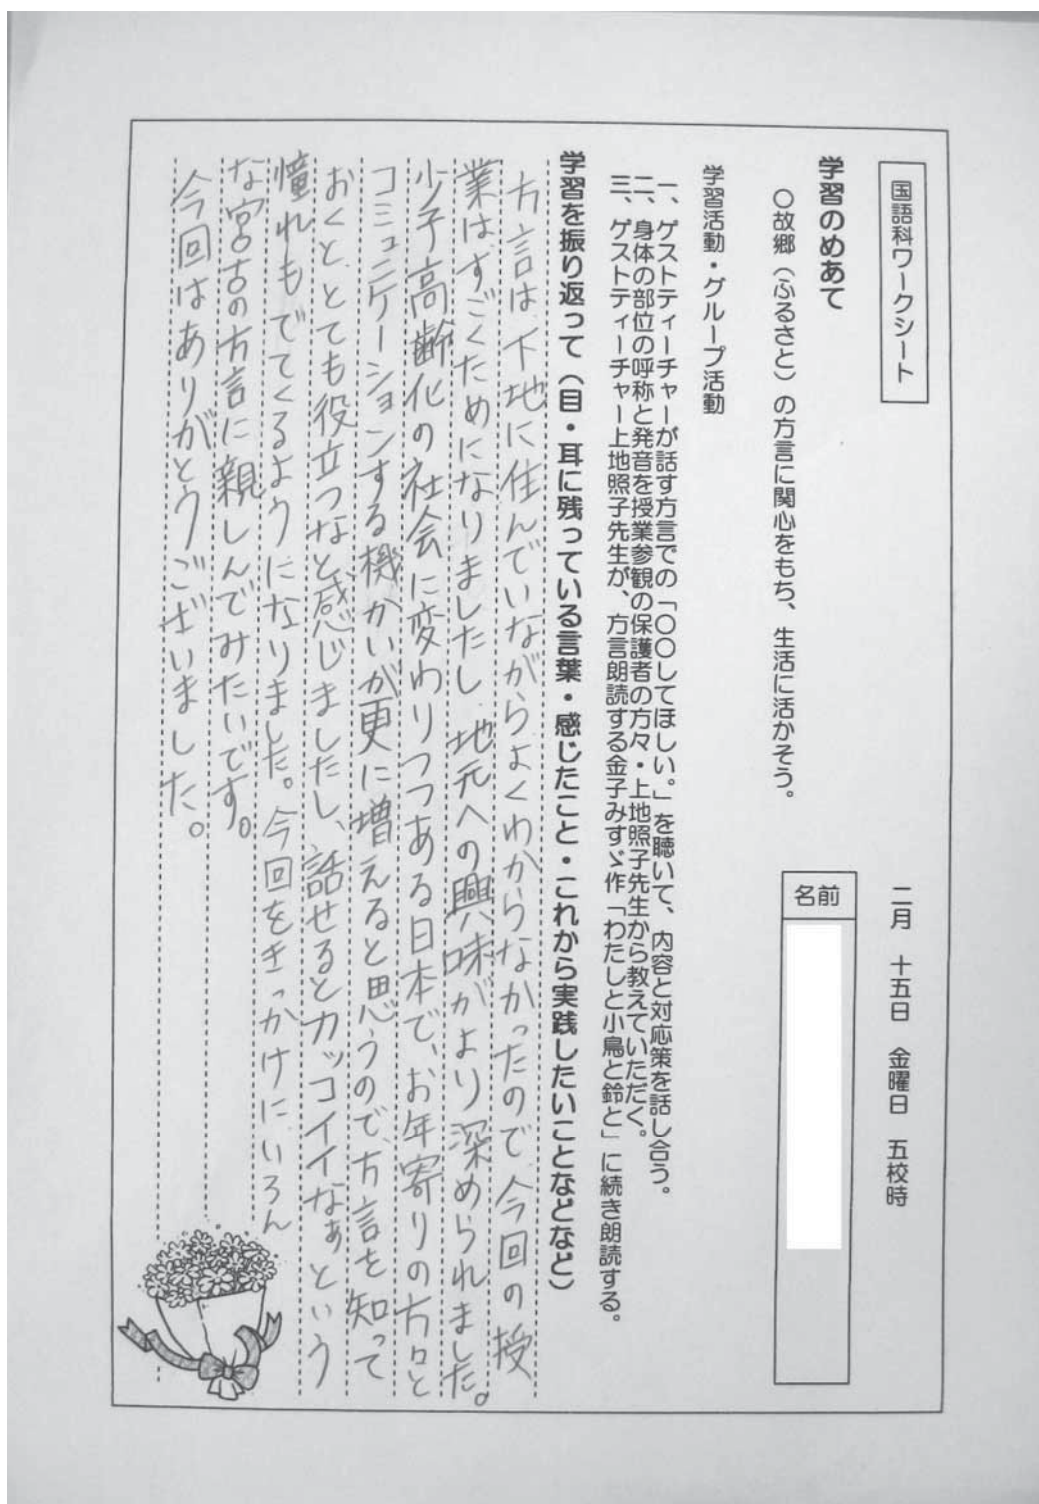 国語科ワークシート
二月　十五日　金曜日　五校時
学習のめあて
○故郷（ふるさと）の方言に関心をもち、生活に活かそう。
名前
学習活動・グループ活動
一、ゲストティーチャーが話す方言での「〇〇してほしい。」を聴いて、内容と対応策を話し合う。
二、身体の部位の呼称と発音を授業参観の保護者の方々・上地照子先生から教えていただく。
三、ゲストティーチャー上地照子先生が、方言朗読する金子みすゞ作「わたしと小鳥と鈴と」に続き朗読する。
学習を振り返って（目・耳に残っている言葉・感じたこと・これから実践したいことなどなど）
方言は、下地に住んでいながらよくわからなかったので、今回の授
業は、すごくためになりましたし、地元への興味がより深められました。
少子高齢化の社会に変わりつつある日本で、お年寄りの方々と
コミュニケーションする機かいが更に増えると思うので、方言を知って
おくと、とても役立つなと感じましたし、話せるとカッコイイなぁという
憧れもでてくるようになりました。今回をきっかけに、いろん
な宮古の方言に親しんでみたいです。
今回はありがとうございました。